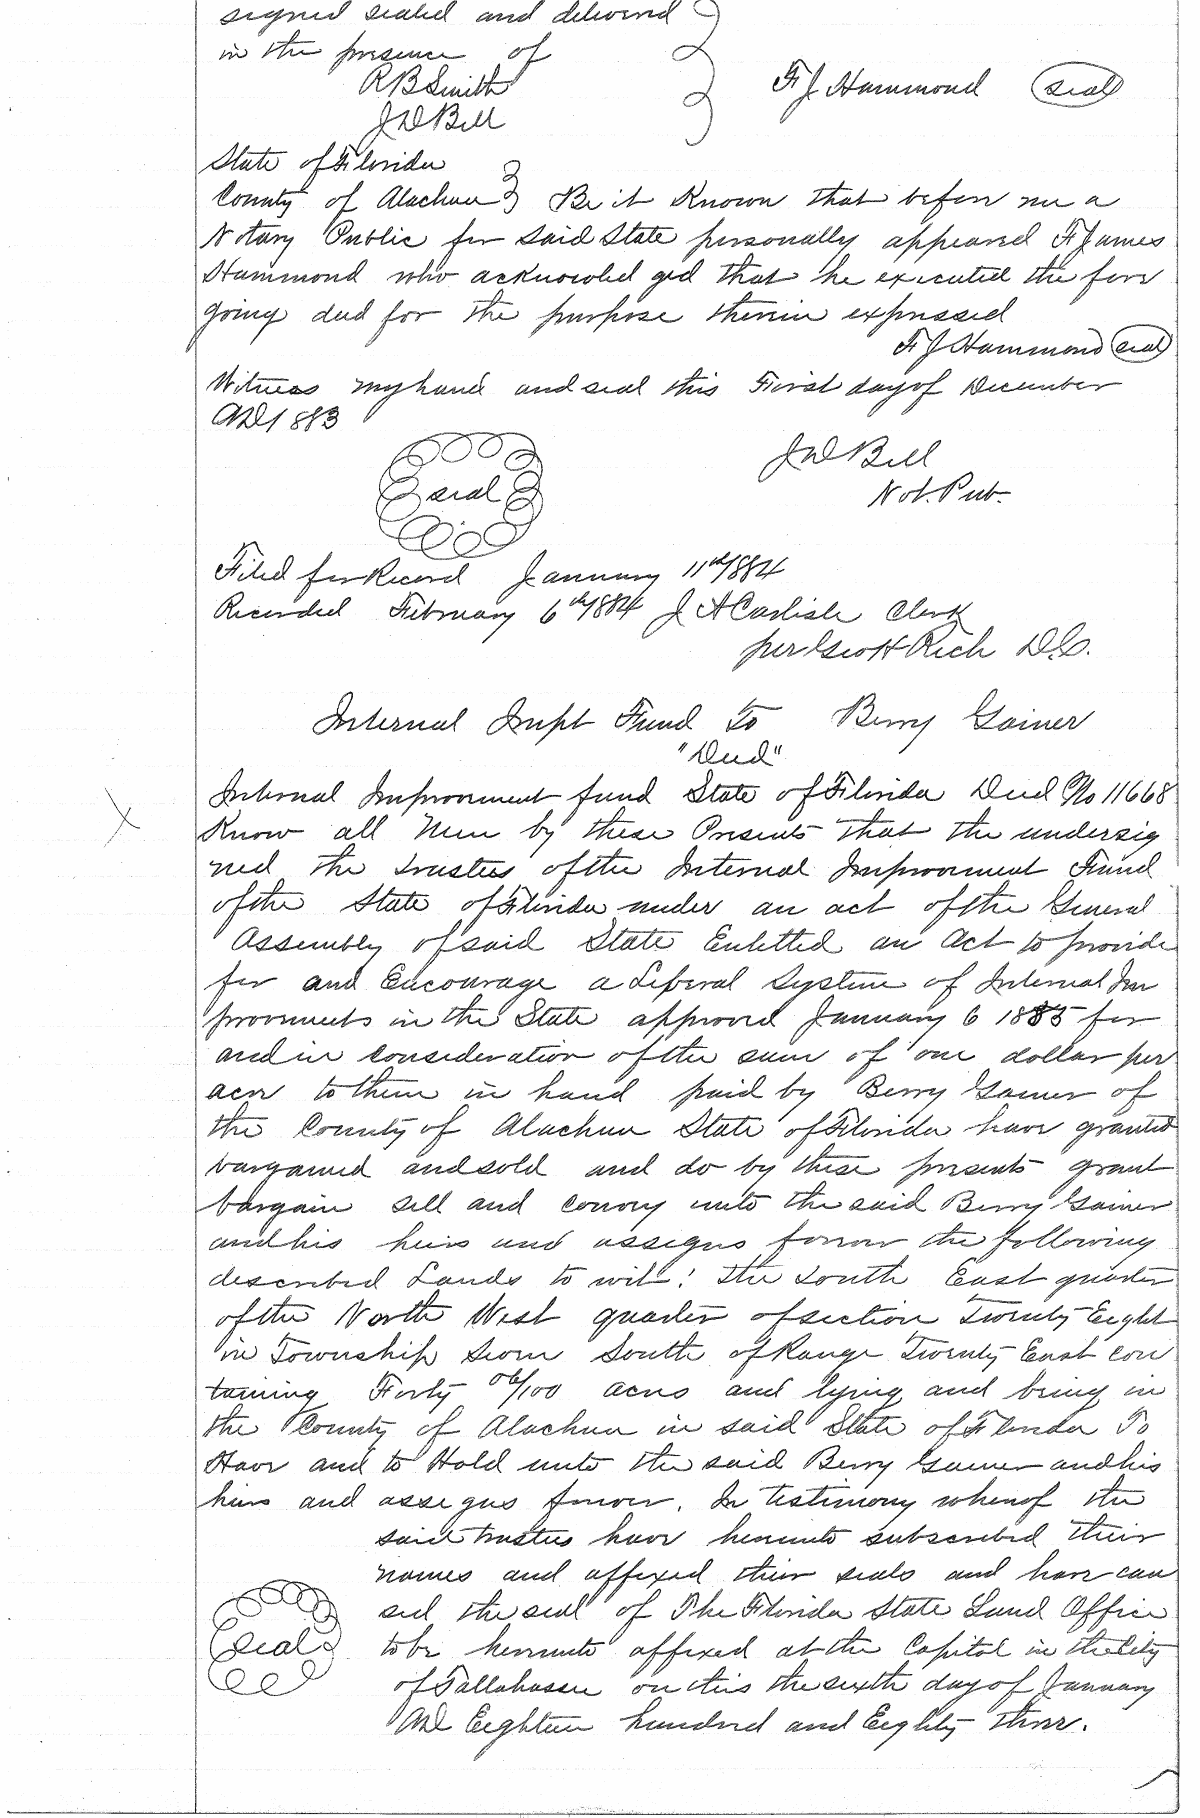 signed sealed and delivered
in the presence of
R B Smith
F J Hammond (seal)
J D Bell
State of Florida
County of Alachua } Be it Known that before me a
Notary Public for said State personally appeared F James
Hammond who acknowled ged that he executed the fore
going deed for the purpose therein expressed
F J Hammond (seal)
Witness my hand and seal this First day of December
AD 1883
J D Bell
seal
Not. Pub.
Filed for Record January 11th 1884
Recorded February 6th 1884 J A Carlisle Clerk
per Rich D.C.
Internal Impt Fund To Berry Gainer
"Deed"
Internal Improvement fund State of Florida Deed No 11668
Know all Men by these Presents that the undersig
ned the trustees of the Internal Improvement Fund
of the State of Florida under an act of the General
Assembly of said State Entitled an Act to provide
for and Encourage a Liberal System of Internal Im
provements in the State approved January 6 1855 for
and in consideration of the sum of one dollar per
acre to them in hand paid by Berry Gainer of
the County of Alachua State of Florida have granted
bargained and sold and do by these presents grant
bargain sell and convey unto the said Berry Gainer
and his heirs and assigns forever the following
described Lands to wit: the South East quarter
of the North West quarter of section Twenty Eight
in Township Seven South of Range Twenty East con
taining Forty 06/100 acres and lying and being in
the County of Alachua in said State of Florida To
Have and to Hold unto the said Berry Gainer and his
heirs and assigns forever. In testimony whereof the
said trustees have hereunto subscribed their
names and affixed their seals and have cau
sed the seal of The Florida State Land Office
seal
to be hereunto affixed at the Capitol in the City
of Tallahassee on this the sixth day of January
AD Eighteen hundred and Eighty three.